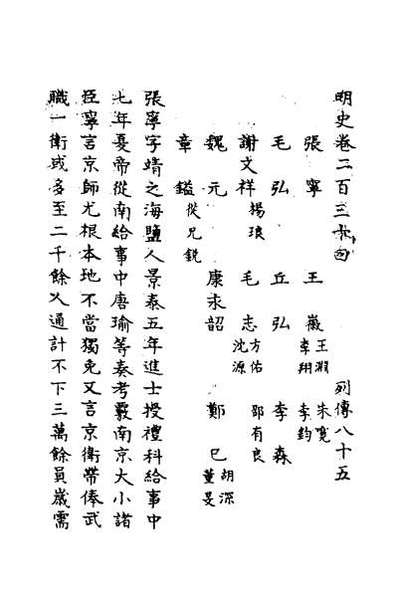 明史卷二百三 列傳八十五
張寧 王徽 王淵 朱寬 李翔 李鈞
毛弘 丘弘 李森
謝文祥 楊琅 毛志 方佑 沈源 邵有良
魏元 康永韶 鄭巳 胡深 董旻
章鎰 從兄銳
張寧字靖之海鹽人景泰五年進士授禮科給事中
七年夏帝從南給事中唐瑜等奏考覈南京大小諸
臣寧言京師尤根本地不當獨免又言京衛帶俸武
職一衛或多至二千餘人通計不下三萬餘員歲需